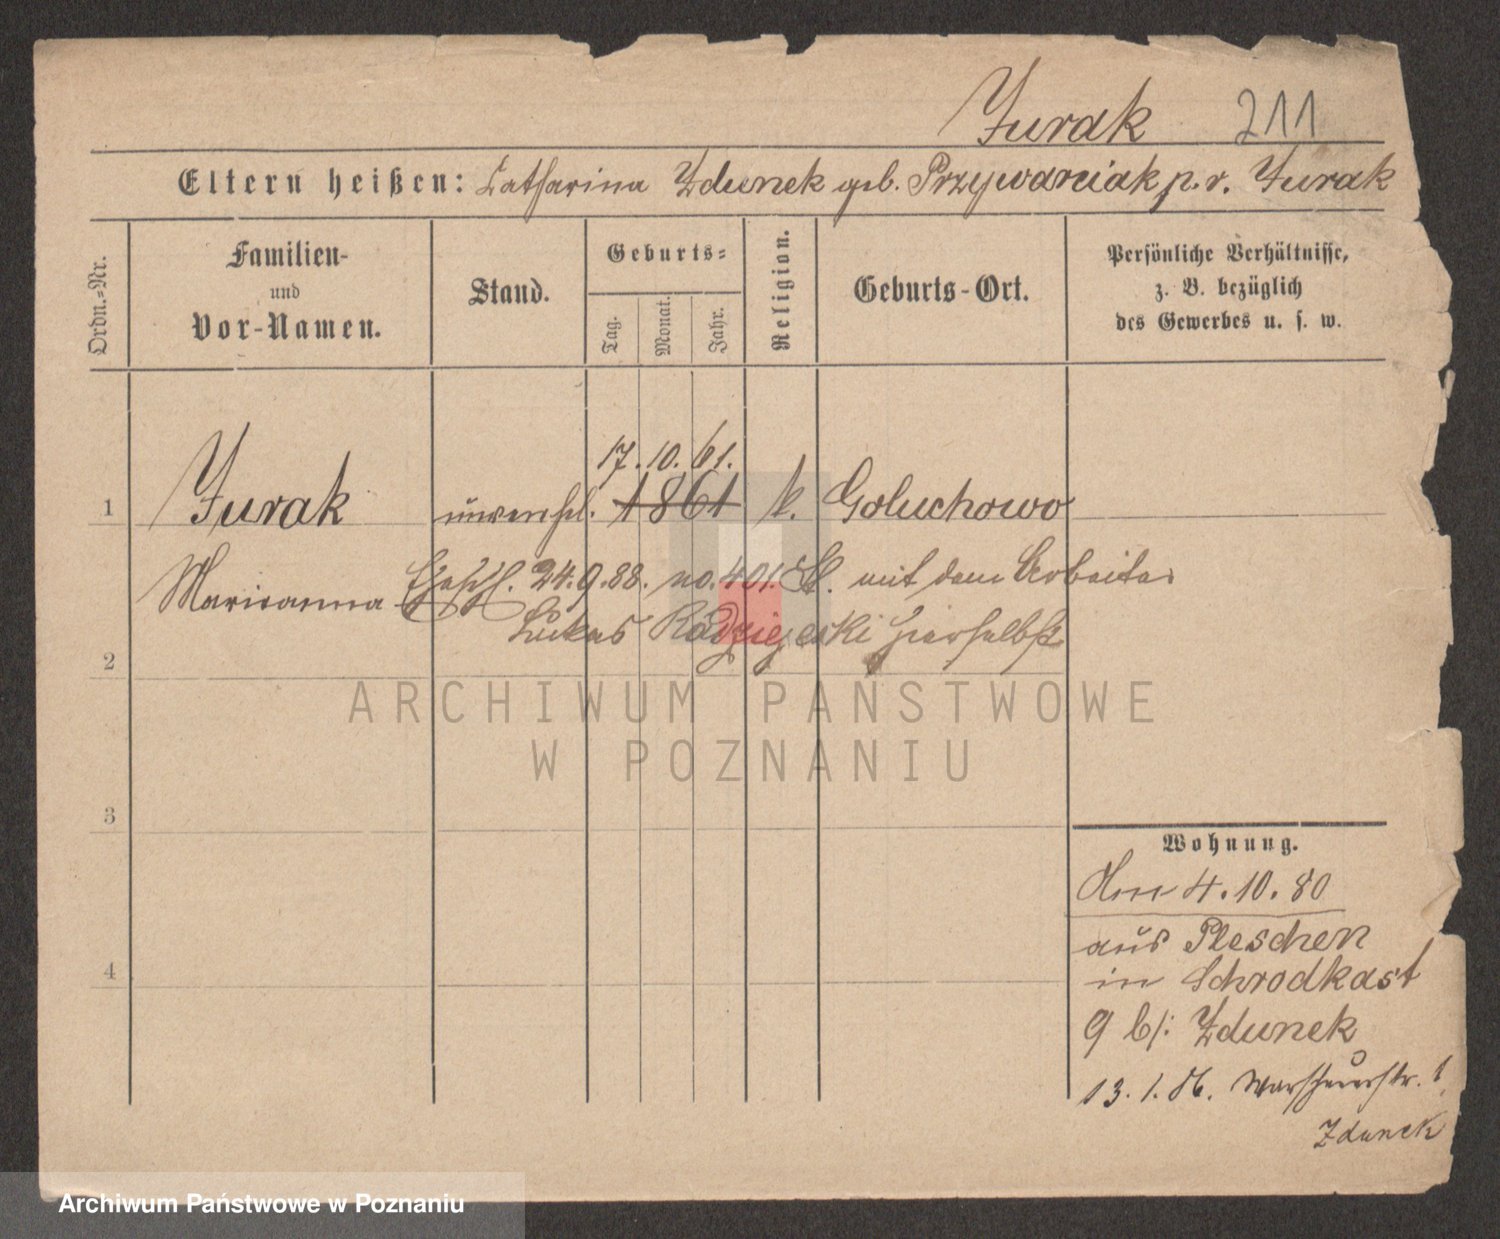 Jurak 211
Eltern heißen: Catharina Zdunek geb. Przywarciak p. v. Jurak
Ordn.=Nr.
Familien- und Vor-Namen.
Stand.
Geburts=
Tag.
Monat.
Jahr.
Religion.
Geburts-Ort.
Persönliche Verhältnisse,
z. B. bezüglich
des Gewerbes u. s. w.
17. 10. 61.
1 Jurak unverehl. 1861 k. Goluchowo
Marianna Eheschl. 24.9.88. no. 401. St. mit dem Arbeiter
Lukas hierselbst
2
3
4
Wohnung.
Am 4.10.80
aus Pleschen
in Schrodkast
9 b/: Zdunek
13. 1. 86. Warschauerstr. 1
Zdunek
ARCHIWUM PAŃSTWOWE
W POZNANIU
Archiwum Państwowe w Poznaniu